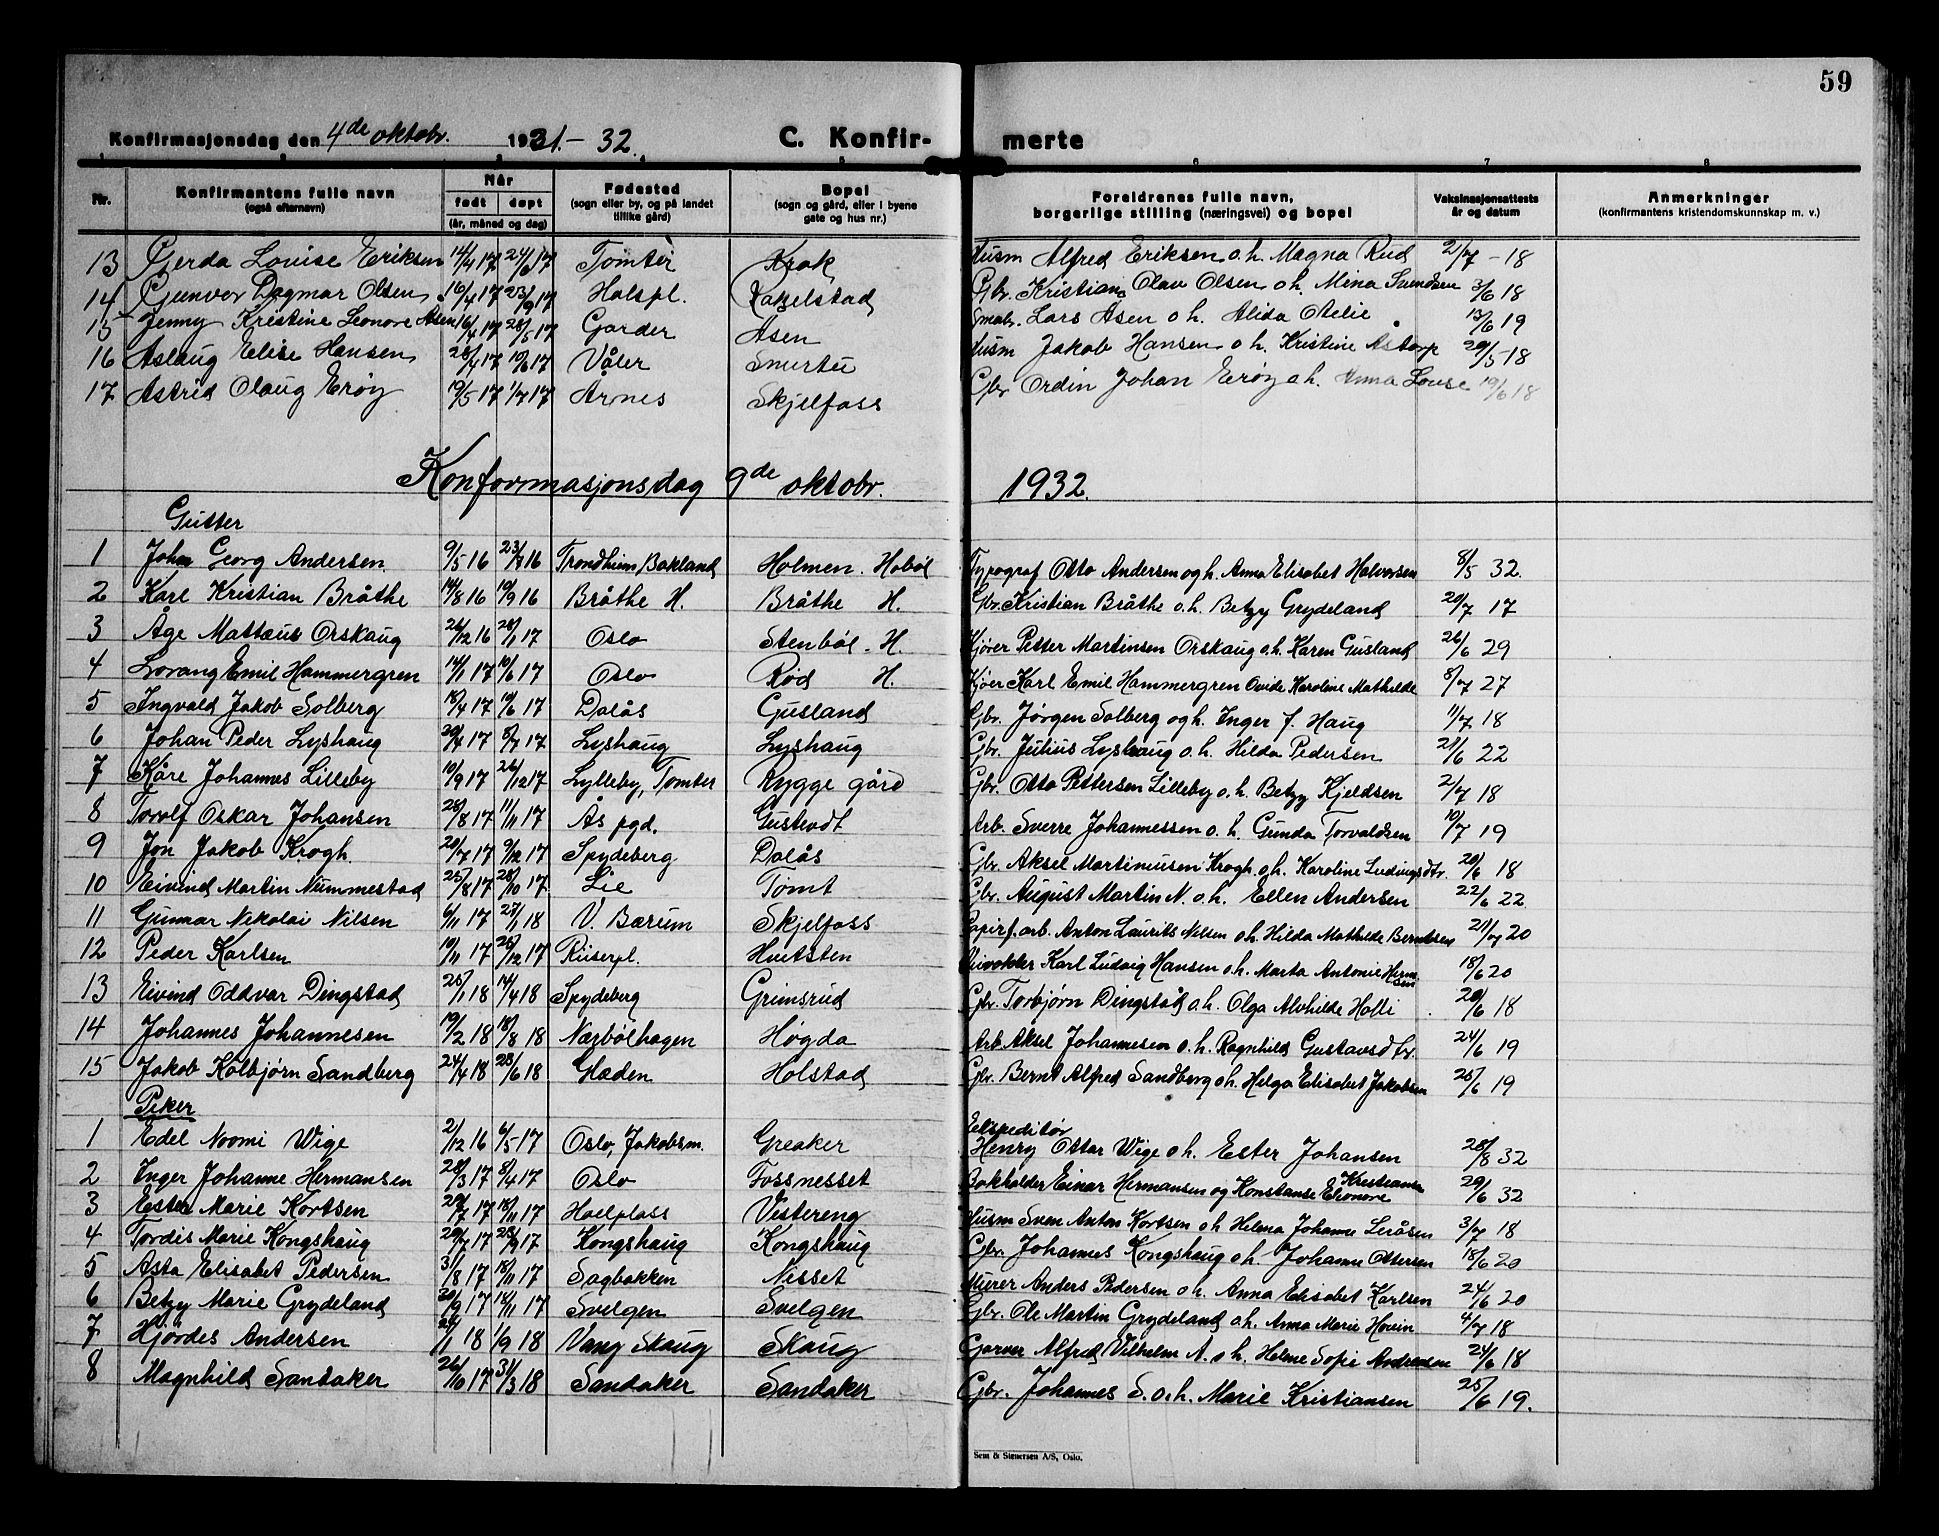 59
Konfirmasjonsdag den 4de oktobr. 1931.- 32. C. Konfir- merte
5 6 7 8
Nr. Konfirmantens fulle navn (også efternavn) Når født døpt (år, måned og dag) Fødested (sogn eller by, og på landet tillike gård) Bopel (sogn og gård, eller i byene gate og hus nr.) Foreldrenes fulle navn, borgerlige stilling (næringsvei) og bopel Vaksinasjonsattests år og datum Anmerkninger (konfirmantens kristendomskunnskap m. v.)
13 Gjerda Louise Eriksen 14/4 17 24/6 17 Tomter Krok Husm Alfred Eriksen o.h. Magna Rud 2/7 - 18
14 Gunvor Dagmar Olsen 16/4 17 23/9 17 Holspl. Kakelstad Gbr. Kristian Olav Olsen o h. Mina Svendsen 3/6 18
15 Jenny Kristine Leonore Åsen 16/4 17 28/5 17 Garder Åsen Småbr. Lars Åsen o h. Alida Otelie 13/6 19
16 Aslaug Elise Hansen 28/4 17 10/6 17 Våler Smertu Husm Jakob Hansen o h. Kristine Åstorp 29/5 - 18
17 Astrid Olaug Erøy 19/5 17 1/7 17 Årnes Skjelfoss Gbr Ordin Johan Erøy o h. Anna Louse 19/6 18
Konformasjonsdag 9de oktobr. 1932.
Gutter
1 Johan Georg Andersen 9/5 16 23/7 16 Trondheim Bakland Holmen. Hobøl Typograf Otto Andersen og h. Anna Elisabet Halvorsen 8/5 32.
2 Karl Kristian Bråthe 14/8 16 10/9 16 Bråthe H. Bråthe H. Gbr. Kristian Bråthe o.h. Betzy Grydeland 20/7 17
3 Åge Mattæus Orskaug 26/12 16 28/1 17 Oslo Stenbøl. H. Kjører Petter Martinsen Orskaug o.h. Karen Gusland 26/6 29
4 Lorang Emil Hammergren 14/1 17 10/6 17 Oslo Rød H. Kjøer Karl Emil Hammergren Ovide Karoline Mathilde 8/7 27
5 Ingvald Jakob Solberg 18/4 17 10/6 17 Dalås Gusland Gbr. Jørgen Solberg og h. Inger f. Haug 11/7 18
6 Johan Peder Lyshaug 20/4 17 8/7 17 Lyshaug Lyshaug Gbr. Julius Lyshaug o.h. Hilda Pedersen 21/6 22
7 Kåre Johannes Lilleby 10/9 17 26/12 17 Lylleby, Tomter Rygge gård Gbr. Otto Pettersen Lilleby o.h. Betzy Kjeldsen 2/7 18
8 Torolf Oskar Johansen 28/8 17 11/11 17 Ås pgd. Gustvdt Arb. Sverre Johannessen o. h. Gunda Torvaldsen 10/7 19
9 Jon Jakob Krogh. 20/7 17 9/12 17 Spydeberg Dalås Gbr. Aksel Martinussen Krogh o.h. Karoline Ludvigsdtr. 20/6 18
10 Eivind Martin Nummestad 25/8 17 28/10 17. Lie Tomt Gbr. August Martin N. o.h. Ellen Andersen 22/6 22
11 Gunnar Nikolai Nilsen 6/11 17 27/1 18 V. Bærum Skjelfoss Papirf. arb. Anton Laurits Nilsen o h. Hilda Mathilde Berntsen 21/7 20
12 Peder Karlsen 10/11 17 26/12 17 Riiserpl. Hvitsten Karl Ludvig Hansen o.h. Marta Antonie Hermsen 18/6 20
13 Eivind Oddvar Dingstad 25/1 18 14/4 18 Spydeberg Grimsrud Gbr. Torbjørn Dingstad o.h. Olga Alvhilde Holli 20/6 18
14 Johannes Johannesen 19/2 18 18/8 18 Næsbølhagen Høgda Arb. Aksel Johannesen o.h. Ragnhild Gustavsdtr. 24/6 19
15 Jakob Kolbjørn Sandberg 24/4 18 23/6 18 Glæden Holstad Gbr. Bernt Alfred Sandberg o.h. Helga Elisabet Jakobsen 25/6 19
Piker
1 Edel Noomi Wige 2/12 16 6/5 17 Oslo, Jakobsm. Greaker Ekspeditør Henry Ottar Wige o h. Ester Johansen 28/8 32
2 Inger Johanne Hermansen 28/3 17 8/4 17 Oslo Fossnesset Bokholder Einar Hermansen og Konstanse Eleonore Kristiansen 29/6 32
3 Ester Marie Kortsen 29/7 17 18/11 17 Hoelplass Vistereng Husm Sven Anton Kortsen o h Helma Johanne Leråsen 3/7 18
4 Tordis Marie Kongshaug 29/7 17 23/9 17 Kongshaug Kongshaug Gbr. Johannes Kongshaug o h. Johanne Ottersen 18/6 20
5 Asta Elisabet Pedersen 31/8 17 18/11 17 Sagbakken Nesset Murer Anders Pedersen o h. Anna Elisabet Karlsen 24/6 20
6 Betzy Marie Grydeland 20/9 17 18/11 17 Svelgen Svelgen Gbr. Ole Martin Grydeland o.h. Anna Marie Hovin 4/7 18
7 Hjørdes Andersen 24/1 18 1/9 18 Vang Skaug Skaug Garver Alfred Vilhelm A. o h. Helene Sofie Andresen 21/6 18
8 Magnhild Sandaker 26/10 17 31/3 18 Sandaker Sandaker Gbr. Johannes S. o.h. Marie Kristiansen 25/6 19.
Sem & Stenersen A/S, Oslo.